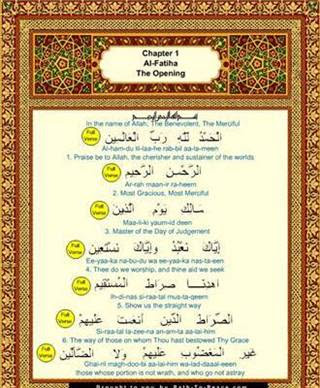 Chapter 1
Al-Fatiha
The Opening
In the name of Allah, The Benevolent, The Merciful
Full Verse
الْحَمْدُ للهِ رَبِّ الْعَالَمِينَ
Al-ham-du lil-laa-he rab-bil aa-la-meen
1. Praise be to Allah, the cherisher and sustainer of the worlds
Full Verse
الرَّحْمٰنِ الرَّحِيمِ
Ar-rah maan-ir ra-heem
2. Most Gracious, Most Merciful
Full Verse
مَالِكِ يَوْمِ الدِّينِ
Maa-li-ki yaum-id deen
3. Master of the Day of Judgement
Full Verse
إِيَّاكَ نَعْبُدُ وَإِيَّاكَ نَسْتَعِينُ
Ee-yaa-ka na-bu-du wa ee-yaa-ka nas-ta-een
4. Thee do we worship, and thine aid we seek
Full Verse
اهْدِنَا صِرَاطَ الْمُسْتَقِيمَ
Ih-di-nas si-raa-tal mus-ta-qeem
5. Show us the straight way
Full Verse
الصِّرَاطَ الَّذِينَ أَنعَمتَ عَلَيهِمْ
Si-raa-tal la-zee-na an-am-ta aa-lai-him
6. The way of those on whom Thou hast bestowed Thy Grace
Full Verse
غَيرِ المَغضُوبِ عَلَيهِمْ وَلاَ الضَّالِّينَ
Ghai-ril magh-doo-bi aa-lai-him wa-lad-daaal-een
those whose portion is not wrath, and who go not astray